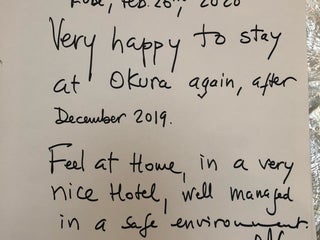 Kobe, Feb. 26th, 2020
Very happy to stay
at Okura again, after
December 2019.
Feel at Home, in a very
nice Hotel, well managed
in a safe environment.